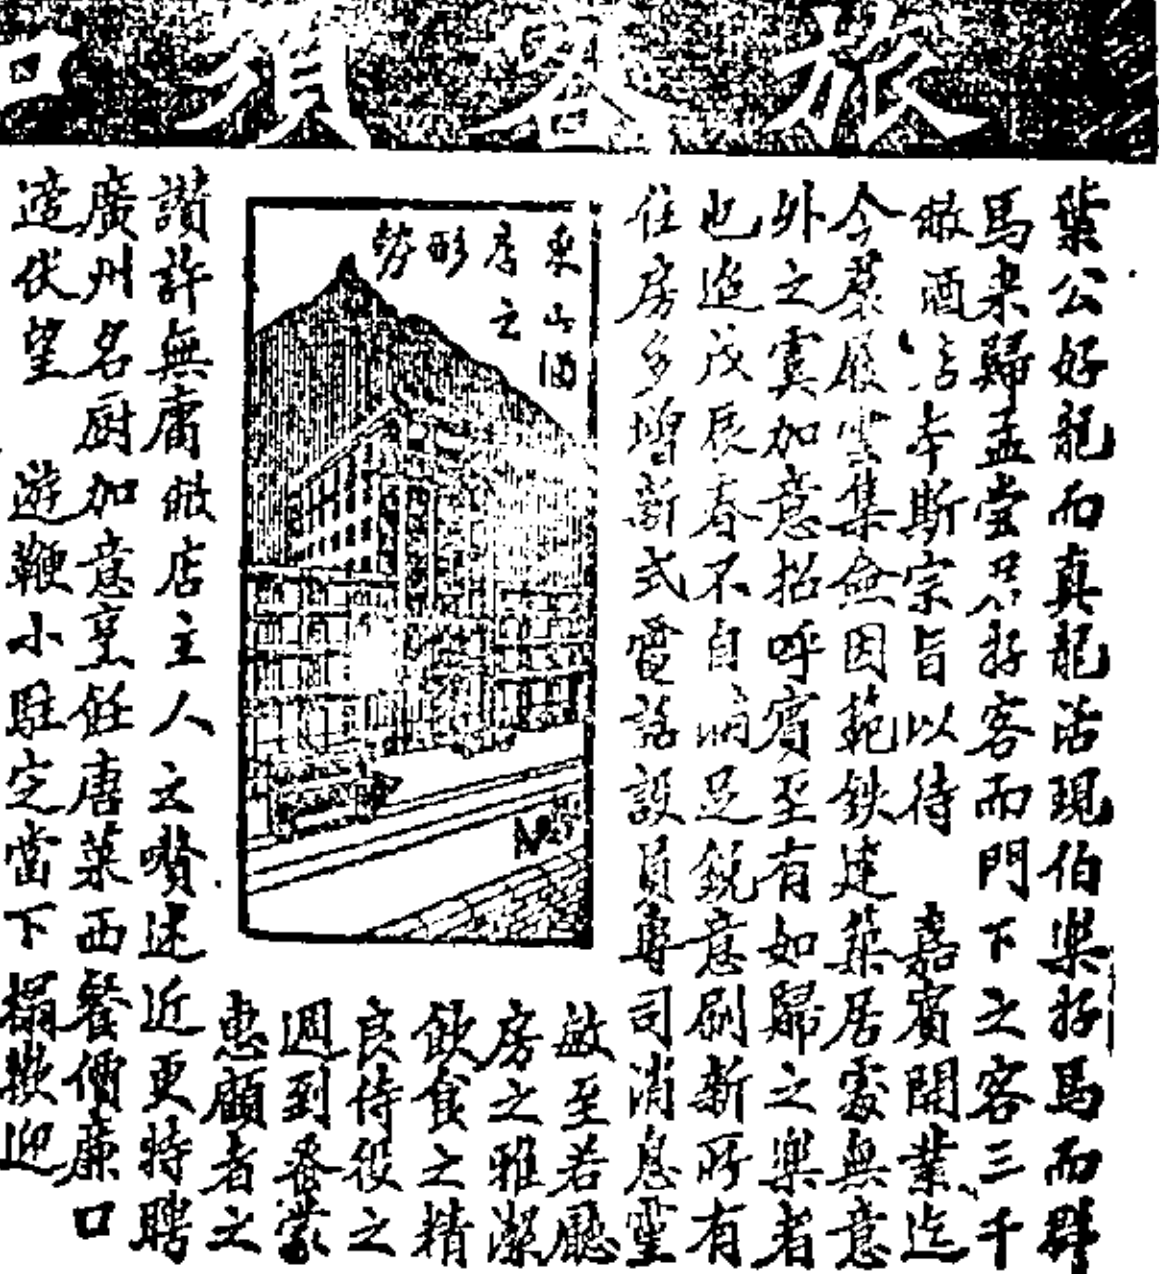 旅客須口
葉公好龍而真龍活現伯樂好馬而群
馬來歸孟嘗只好客而門下之客三千
敝酒店本斯宗旨以待嘉賓開業迄
今羣屐雲集無因範鉄建築居處無意
外之虞加意招呼賓至有如歸之樂者
也迨戊辰春不自滿足銳意刷新所有
住房多增新式電話設員專司消息靈
敏至若廳
房之雅潔
飲食之精
良待役之
週到叠蒙
惠顧者之
讚許無庸敝店主人之贅述近更特聘
廣州名厨加意烹飪唐菜西餐價廉口
遊鞭小駐定當下榻歡迎
東山酒店之形勢